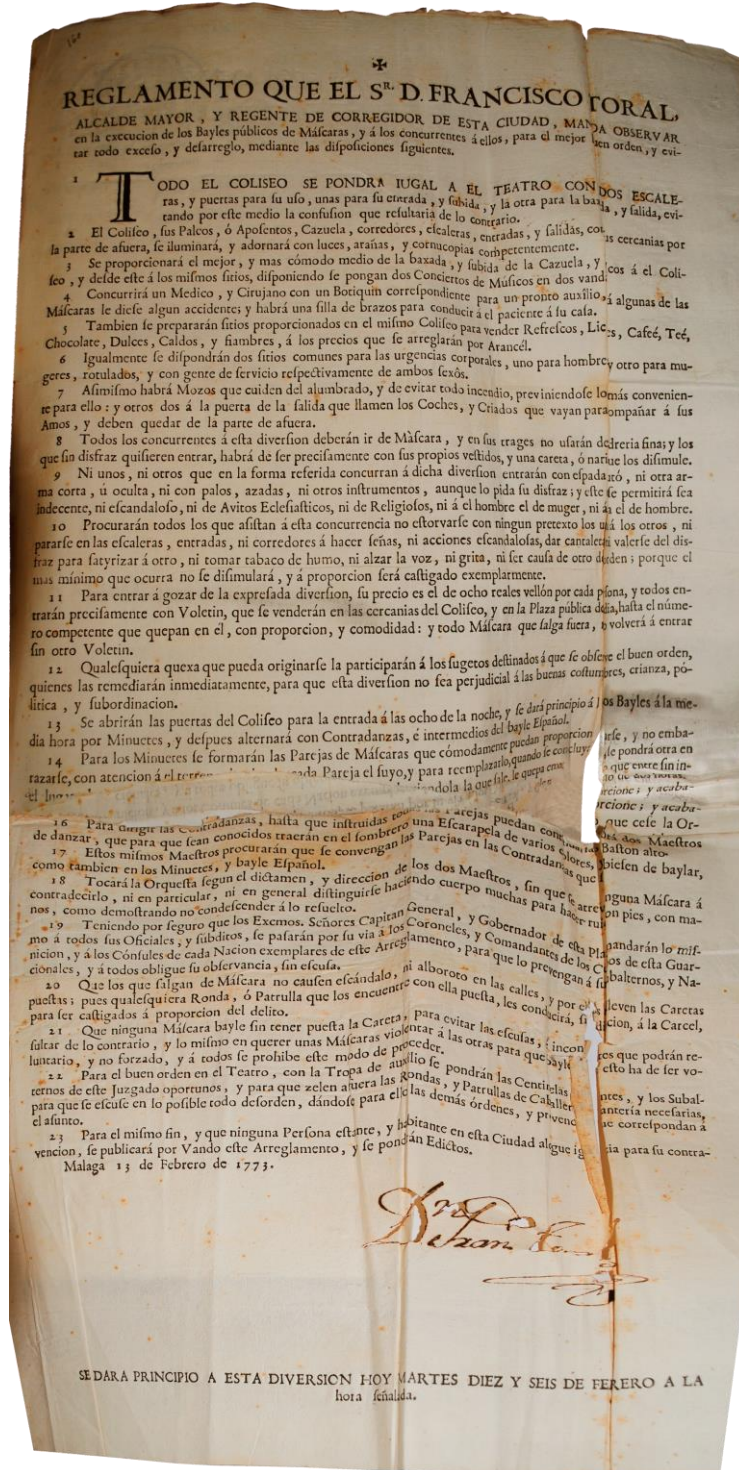 160
✠
REGLAMENTO QUE EL S.R D. FRANCISCO TORAL,
ALCALDE MAYOR, Y REGENTE DE CORREGIDOR DE ESTA CIUDAD, MANDA OBSERVAR
en la execucion de los Bayles públicos de Máſcaras, y á los concurrentes á ellos, para el mejor buen orden, y evi-
tar todo exceſo, y deſarreglo, mediante las diſpoſiciones ſiguientes.
1 TODO EL COLISEO SE PONDRA IUGAL A EL TEATRO CON DOS ESCALE-
ras, y puertas para ſu uſo, unas para ſu entrada, y ſubida, y la otra para la baxada, y ſalida, evi-
tando por eſte medio la confuſion que reſultaria de lo contrario.
2 El Coliſeo, ſus Palcos, ó Apoſentos, Cazuela, corredores, eſcaleras, entradas, y ſalidas, con ſus cercanias por
la parte de afuera, ſe iluminará, y adornará con luces, arañas, y cornucopias competentemente.
3 Se proporcionará el mejor, y mas cómodo medio de la baxada, y ſubida de la Cazuela, y á el Coli-
ſeo, y deſde eſte á los miſmos ſitios, diſponiendo ſe pongan dos Conciertos de Múſicos en dos
4 Concurrirá un Medico, y Cirujano con un Botiquin correſpondiente para un pronto auxilio, á algunas de las
Máſcaras le dieſe algun accidente; y habrá una ſilla de brazos para conducir á el paciente á ſu caſa.
5 Tambien ſe prepararán ſitios proporcionados en el miſmo Coliſeo para vender Refreſcos, Cafeé, Teé,
Chocolate, Dulces, Caldos, y fiambres, á los precios que ſe arreglarán por Arancél.
6 Igualmente ſe diſpondrán dos ſitios comunes para las urgencias corporales, uno para hombre y otro para mu-
geres, rotulados, y con gente de ſervicio reſpectivamente de ambos ſexôs.
7 Aſimiſmo habrá Mozos que cuiden del alumbrado, y de evitar todo incendio, previniendoſe lo más convenien-
te para ello: y otros dos á la puerta de la ſalida que llamen los Coches, y Criados que vayan para á ſus
Amos, y deben quedar de la parte de afuera.
8 Todos los concurrentes á eſta diverſion deberán ir de Máſcara, y en ſus trages no uſarán finas; y los
que ſin disfraz quiſieren entrar, habrá de ſer preciſamente con ſus propios veſtidos, y una careta, ó los diſimule.
9 Ni unos, ni otros que en la forma referida concurran á dicha diverſion entrarán con eſpada, ni otra ar-
ma corta, ú oculta, ni con palos, azadas, ni otros inſtrumentos, aunque lo pida ſu disfraz; y eſte ſe permitirá ſea
indecente, ni eſcandaloſo, ni de Avitos Ecleſiaſticos, ni de Religioſos, ni á el hombre el de muger, ni á el de hombre.
10 Procurarán todos los que aſiſtan á eſta concurrencia no eſtorvarſe con ningun pretexto los á los otros, ni
pararſe en las eſcaleras, entradas, ni corredores á hacer ſeñas, ni acciones eſcandaloſas, dar valerſe del dis-
fraz para ſatyrizar á otro, ni tomar tabaco de humo, ni alzar la voz, ni grita, ni ſer cauſa de otro; porque el
mas mínimo que ocurra no ſe diſimulará, y á proporcion ſerá caſtigado exemplarmente.
11 Para entrar á gozar de la expreſada diverſion, ſu precio es el de ocho reales vellón por cada perſona, y todos en-
trarán preciſamente con Voletin, que ſe venderán en las cercanias del Coliſeo, y en la Plaza pública haſta el núme-
ro competente que quepan en él, con proporcion, y comodidad: y todo Máſcara que ſalga fuera, volverá á entrar
ſin otro Voletin.
12 Qualeſquiera quexa que pueda originarſe la participarán á los ſugetos deſtinados á que ſe obſerve el buen orden,
quienes las remediarán inmediatamente, para que eſta diverſion no ſea perjudicial á las buenas coſtumbres, crianza, pó-
litica, y ſubordinacion.
13 Se abrirán las puertas del Coliſeo para la entrada á las ocho de la noche, y ſe dará principio á los Bayles á la me-
dia hora por Minuetes, y deſpues alternará con Contradanzas, é intermedios del bayle Eſpañol.
14 Para los Minuetes ſe formarán las Parejas de Máſcaras que cómodamente puedan proporcionarſe, y no emba-
razarſe, con atencion á el cada Pareja el ſuyo, y para reemplazarlo, quando ſe concluy, ſe pondrá otra en
que entre ſin in-
; y acaba-
16 Para dirigir las Contradanzas, haſta que inſtruidas Parejas puedan que ceſe la Or-
de danzar, que para que ſean conocidos traerán en el ſombrero una Eſcarapela de varios colores, dos Maeſtros
17 Eſtos miſmos Maeſtros procurarán que ſe convengan las Parejas en las Contradanzas que Baſton alto.
como tambien en los Minuetes, y bayle Eſpañol. de baylar,
18 Tocará la Orqueſta ſegun el dictamen, y direccion de los dos Maeſtros, ſin que ninguna Máſcara á
contradecirlo, ni en particular, ni en general diſtinguirſe haciendo cuerpo muchas para hacer con pies, con ma-
nos, como demoſtrando no condeſcender á lo reſuelto.
19 Teniendo por ſeguro que los Excmos. Señores Capitan General, y Gobernador de eſta mandarán lo miſ-
mo á todos ſus Oficiales, y ſubditos, ſe paſarán por ſu via á los Coroneles, y Comandantes de los de eſta Guar-
nicion, y á los Cónſules de cada Nacion exemplares de eſte Arreglamento, para que lo prevengan á ſubalternos, y Na-
cionales, y á todos obligue ſu obſervancia, ſin eſcuſa.
20 Que los que ſalgan de Máſcara no cauſen eſcándalo, ni alboroto en las calles, y por lleven las Caretas
pueſtas; pues qualeſquiera Ronda, ó Patrulla que los encuentre con ella pueſta, les conducirá, á la Carcel,
para ſer caſtigados á proporcion del delito.
21 Que ninguna Máſcara bayle ſin tener pueſta la Careta, para evitar las eſcuſas, que podrán re-
ſultar de lo contrario, y lo miſmo en querer unas Máſcaras violentar á las otras para que bayle eſto ha de ſer vo-
luntario, y no forzado, y á todos ſe prohibe eſte modo de proceder.
22 Para el buen orden en el Teatro, con la Tropa de auxîlio ſe pondrán las Centinelas y los Subal-
ternos de eſte Juzgado oportunos, y para que zelen afuera las Rondas, y Patrullas de necesarias,
para que ſe eſcuſe en lo poſible todo deſorden, dándoſe para ello las demás órdenes, y correſpondan á
el aſunto.
23 Para el miſmo fin, y que ninguna Perſona eſtante, y habitante en eſta Ciudad alegue para ſu contra-
vencion, ſe publicará por Vando eſte Arreglamento, y ſe pondrán Edictos.
Malaga 13 de Febrero de 1773.
SE DARA PRINCIPIO A ESTA DIVERSION HOY MARTES DIEZ Y SEIS DE FERERO A LA
hora ſeñalida.